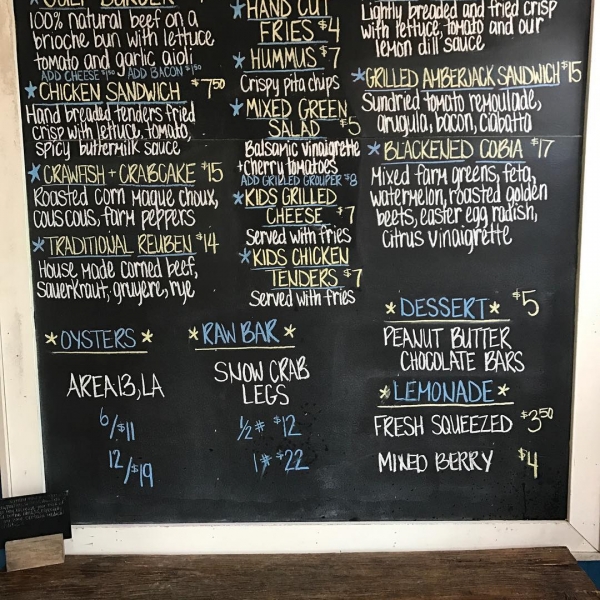 BURGER
100% natural beef on a
brioche bun with lettuce,
tomato and garlic aioli
ADD CHEESE $1.50 ADD BACON $1.50
CHICKEN SANDWICH $7.50
Hand breaded tenders fried
crisp with lettuce, tomato,
spicy buttermilk sauce
CRAWFISH + CRABCAKE $15
Roasted corn maque choux,
cous cous, farm peppers
TRADITIONAL REUBEN $14
House made corned beef,
sauerkraut, gruyere, rye
HAND CUT
FRIES $4
HUMMUS $7
Crispy pita chips
MIXED GREEN
SALAD $5
Balsamic vinaigrette
+ cherry tomatoes
ADD GRILLED GROUPER $8
KIDS GRILLED
CHEESE $7
Served with fries
KIDS CHICKEN
TENDERS $7
Served with fries
Lightly breaded and fried crisp
with lettuce, tomato and our
lemon dill sauce
GRILLED AMBERJACK SANDWICH $15
Sundried tomato remoulade,
arugula, bacon, ciabatta
BLACKENED COBIA $17
Mixed farm greens, feta,
watermelon, roasted golden
beets, easter egg radish,
citrus vinaigrette
OYSTERS
AREA 13, LA
6/$11
12/$19
RAW BAR
SNOW CRAB
LEGS
1/2 # $12
1 # $22
DESSERT $5
PEANUT BUTTER
CHOCOLATE BARS
LEMONADE
FRESH SQUEEZED $3.50
MIXED BERRY $4